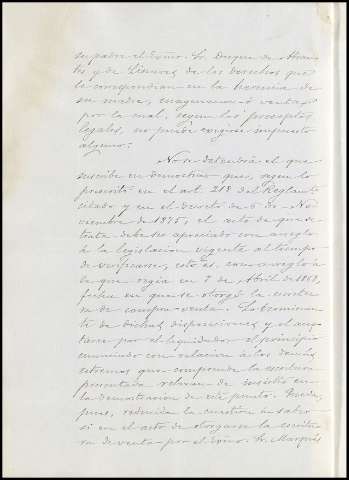 su padre el Exmo. Sr. Duque de Abran-
tes y de Linares de los derechos que
le correspondian en la herencia de
su madre, enagenacion ó venta
por la cual, segun los preceptos
legales, no puede exigirse impuesto
alguno.
No se detendrá el que
suscribe en demostrar que, segun lo
prescrito en el art. 218 del Reglamto
citado y en el Decreto de 6 de No-
viembre de 1875, el acto de que se
trata debe ser apreciado con arreglo
á la legislacion vigente al tiempo
de verificarse, esto es, con arreglo á
la que regia en 7 de Abril de 1868,
fecha en que se otorgó la escritu-
ra de compra-venta. Lo terminan-
te de dichas disposiciones y el acep-
tarse por el liquidador el principio
enunciado con relacion á los demás
estremos que comprende la escritura
presentada relevan de insistir en
la demostracion de este punto. Queda,
pues, reducida la cuestion á saber
si en el acto de otorgarse la escritu-
ra de venta por el Exmo. Sr. Marqués